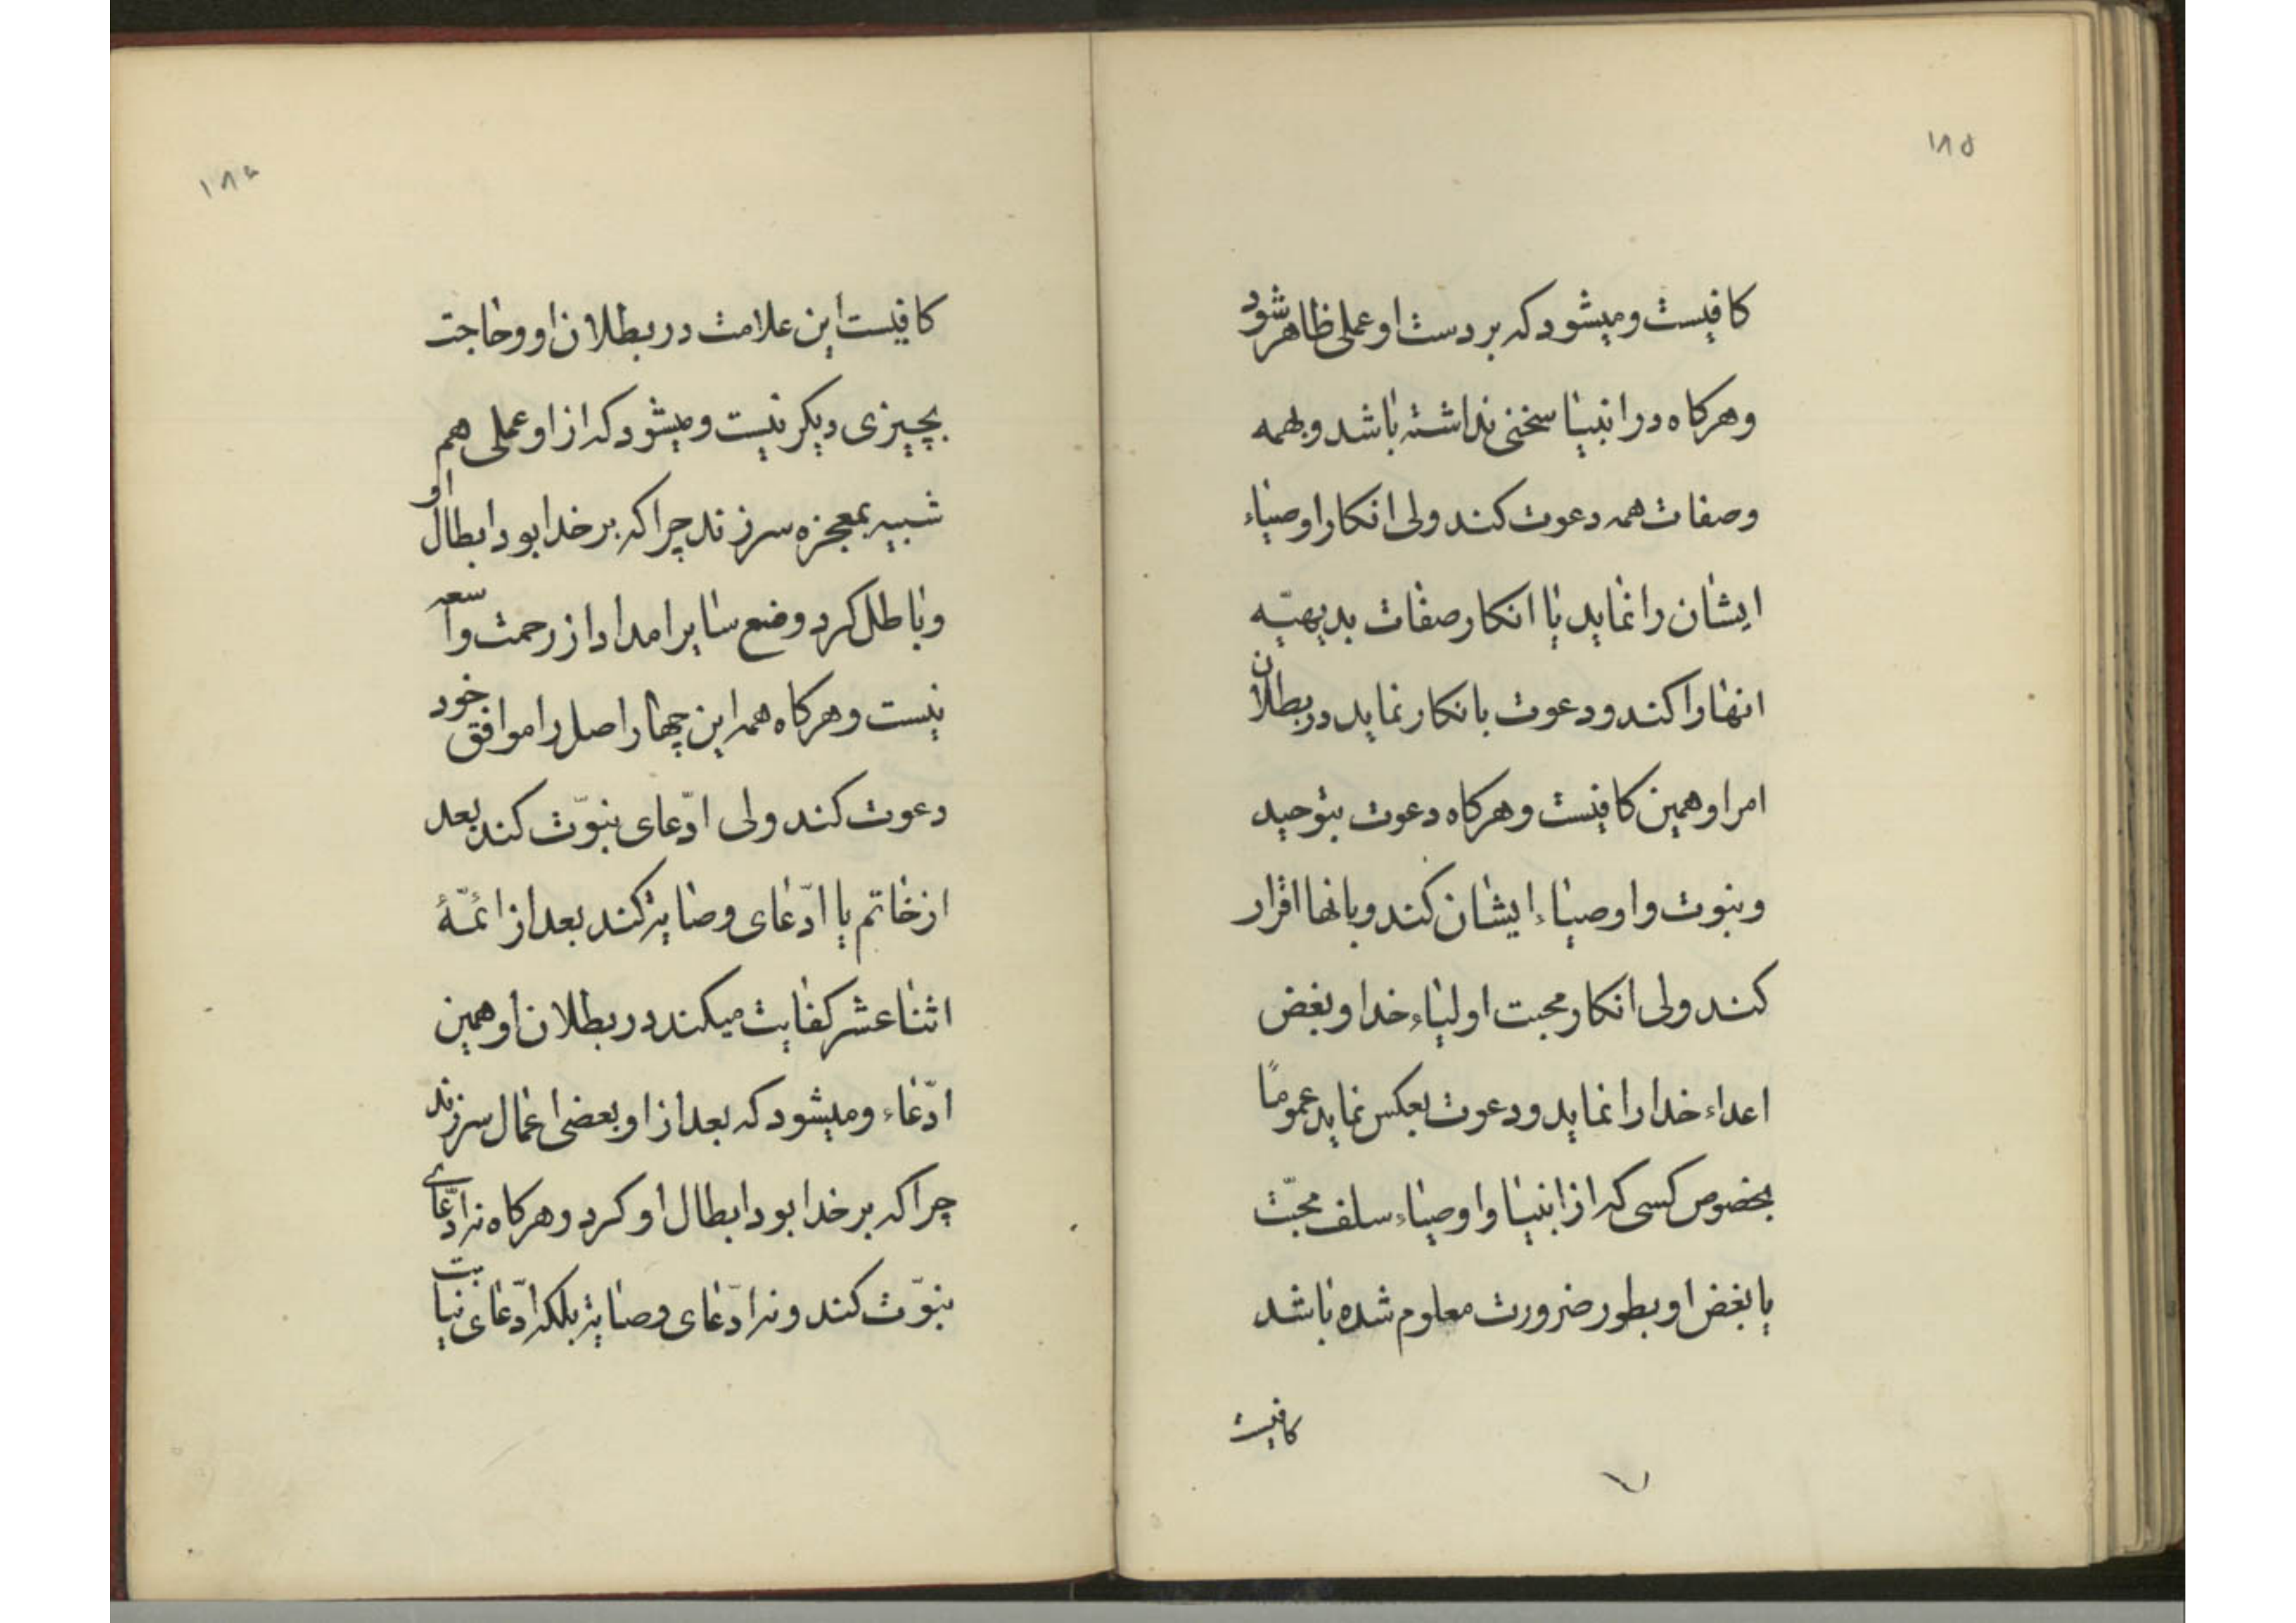 ۱۸۵
کافیست و میشود که بر دست او عملی ظاهر شود
و هرکاه در انبیا سخنی نداشته باشد و بهمه
و صفات همه دعوت کند ولی انکار اوصیاء
ایشان را نماید یا انکار صفات بدیهیّه
انها را کند و دعوت بانکار نماید در بطلان
امر او همین کافیست و هرکاه دعوت بتوحید
و نبوت و اوصیاء ایشان کند و بانها اقرار
کند ولی انکار محبت اولیاء خدا و بغض
اعداء خدا را نماید و دعوت بعکس نماید عمومًا
بخصوص کسی که از انبیا و اوصیاء سلف محبّت
یا بغض او بطور ضرورت معلوم شده باشد
کافیست
۱۸۶
کافیست این علامت در بطلان او و حاجت
بچیزی دیکر نیست و میشود که از او عملی هم
شبیه بمعجزه سر زند چرا که بر خدا بود ابطال او
و باطل کرد و ضع سایر امداد از رحمت واسعه
نیست و هرکاه همه این چهار اصل را موافق خود
دعوت کند ولی ادّعای نبوّت کند بعد
از خاتم یا ادّعای وصایة کند بعد از ائمّهٔ
اثنا عشر کفایت میکند در بطلان او همین
ادّعاء و میشود که بعد از او بعضی اعمال سر زند
چرا که بر خدا بود ابطال او کرد و هرکاه نه ادّعای
نبوّت کند و نه ادّعای وصایة بلکه ادّعای نیابت